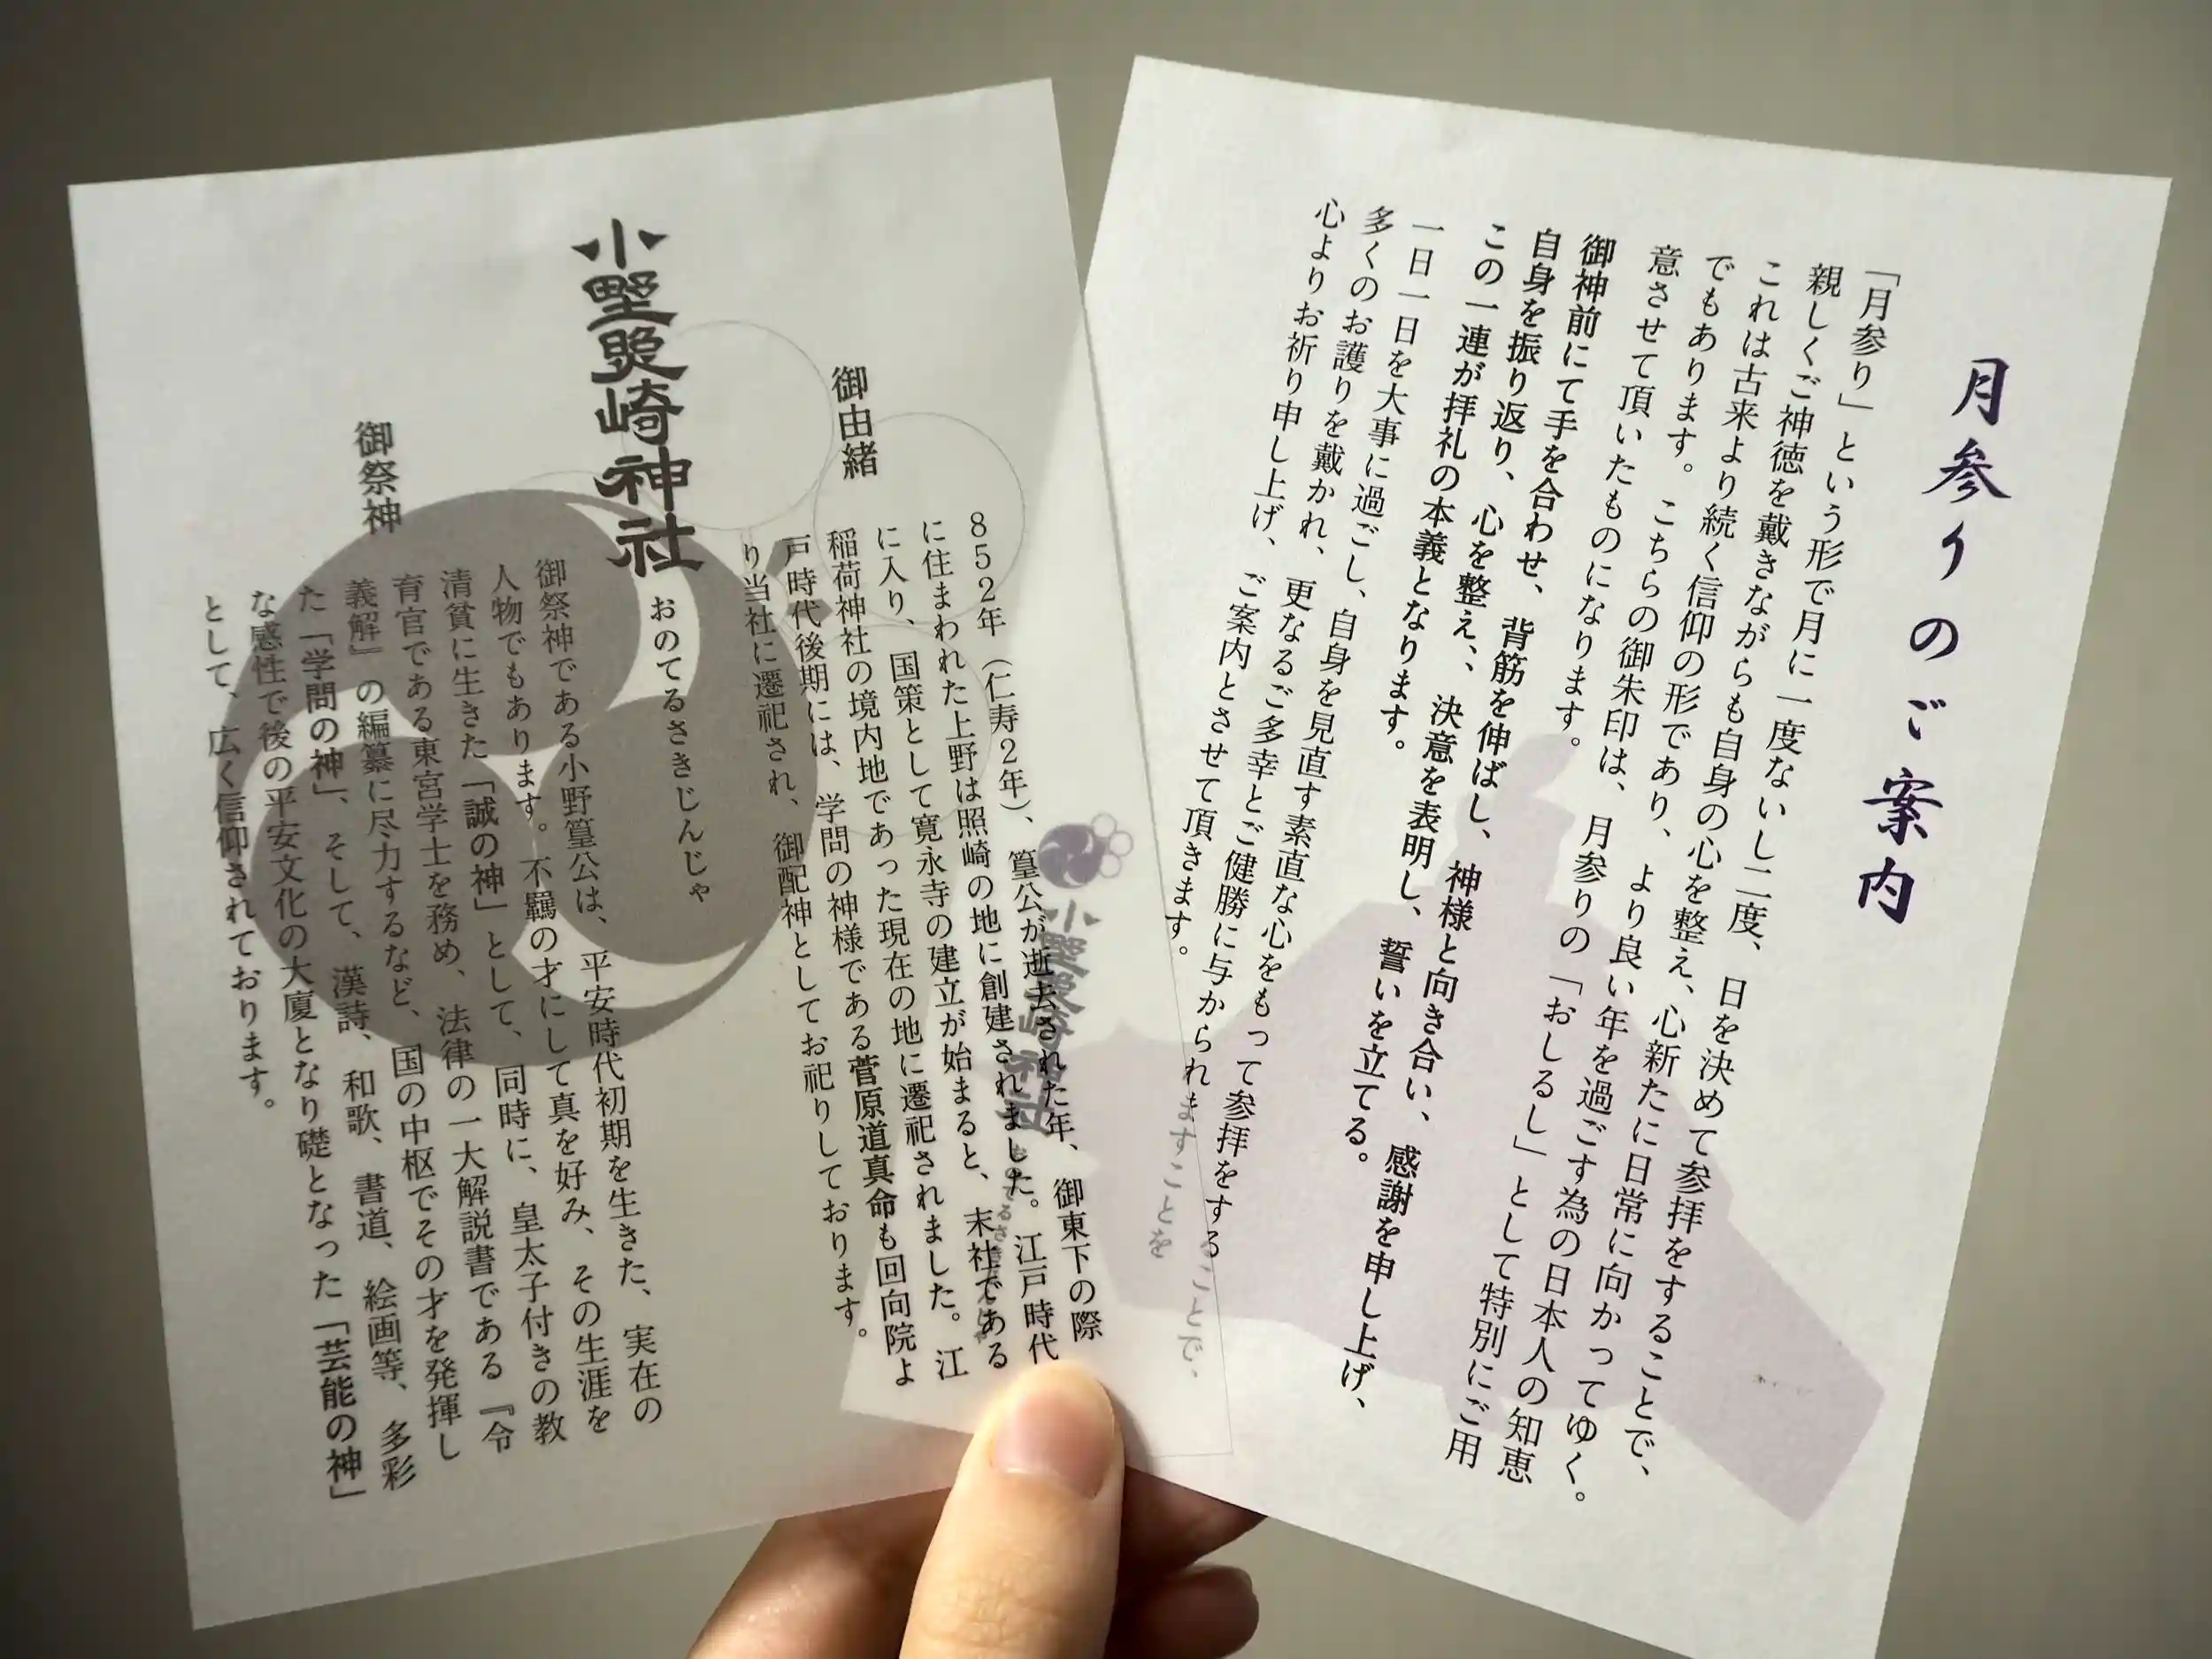 月参りのご案内
「月参り」という形で月に一度ないし二度、日を決めて参拝をすることで、
親しくご神徳を戴きながらも自身の心を整え、心新たに日常に向かってゆく。
これは古来より続く信仰の形であり、より良い年を過ごす為の日本人の知恵
でもあります。こちらの御朱印は、月参りの「おしるし」として特別にご用
意させて頂いたものになります。
御神前にて手を合わせ、背筋を伸ばし、神様と向き合い、感謝を申し上げ、
自身を振り返り、心を整え、、決意を表明し、誓いを立てる。
この一連が拝礼の本義となります。
一日一日を大事に過ごし、自身を見直す素直な心をもって参拝をすることで、
多くのお護りを戴かれ、更なるご多幸とご健勝に与かられますことを
心よりお祈り申し上げ、ご案内とさせて頂きます。
小野照崎神社
御由緒
852年（仁寿2年）、篁公が逝去された年、御東下の際
に住まわれた上野は照崎の地に創建されました。江戸時代
に入り、国策として寛永寺の建立が始まると、末社である
稲荷神社の境内地であった現在の地に遷祀されました。江
戸時代後期には、学問の神様である菅原道真命も回向院よ
り当社に遷祀され、御配神としてお祀りしております。
小野照崎神社
おのてるさきじんじゃ
御祭神
御祭神である小野篁公は、平安時代初期を生きた、実在の
人物でもあります。不羈の才にして真を好み、その生涯を
清貧に生きた「誠の神」として、同時に、皇太子付きの教
育官である東宮学士を務め、法律の一大解説書である『令
義解』の編纂に尽力するなど、国の中枢でその才を発揮し
た「学問の神」、そして、漢詩、和歌、書道、絵画等、多彩
な感性で後の平安文化の大廈となり礎となった「芸能の神」
として、広く信仰されております。